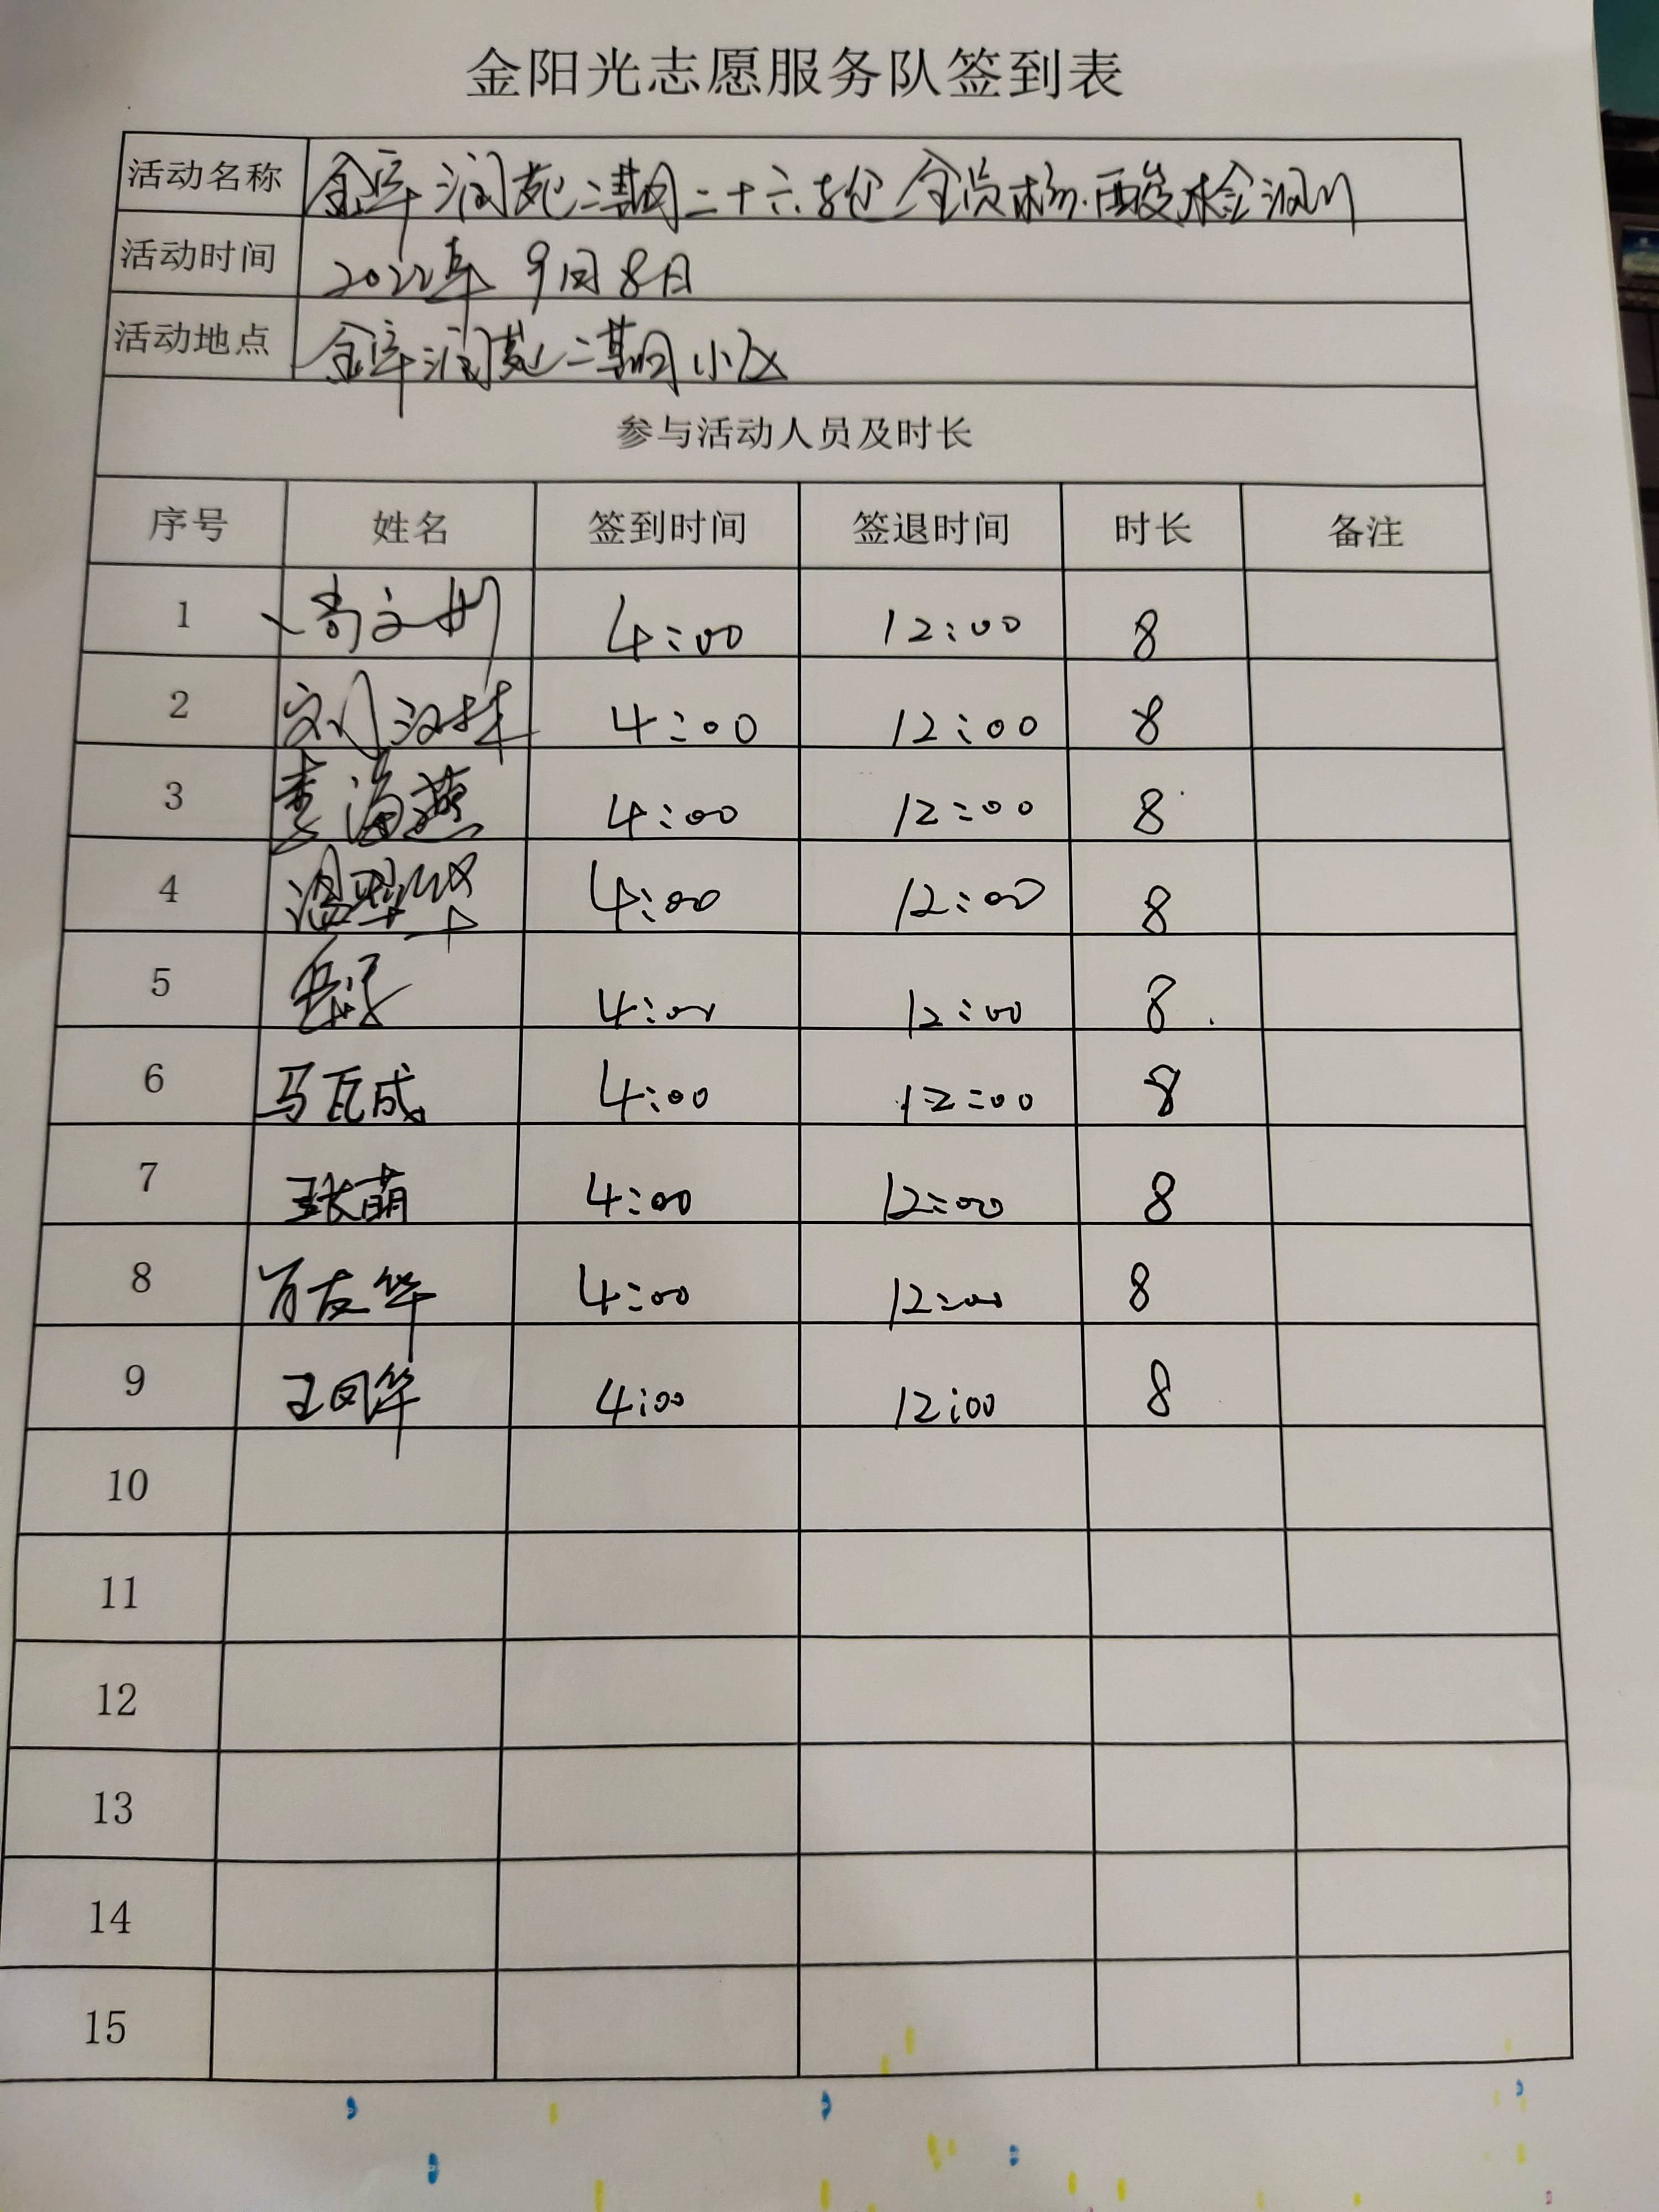 金阳光志愿服务队签到表
活动名称 金库润苑二期二十六轮全员核酸检测
活动时间 2022年9月8日
活动地点 金库润苑二期小区
参与活动人员及时长
序号 姓名 签到时间 签退时间 时长 备注
1 4:00 12:00 8
2 刘汉桂 4:00 12:00 8
3 李海燕 4:00 12:00 8
4 4:00 12:00 8
5 4:00 12:00 8
6 马瓦成 4:00 12:00 8
7 张萌 4:00 12:00 8
8 肖友华 4:00 12:00 8
9 王凤华 4:00 12:00 8
10
11
12
13
14
15